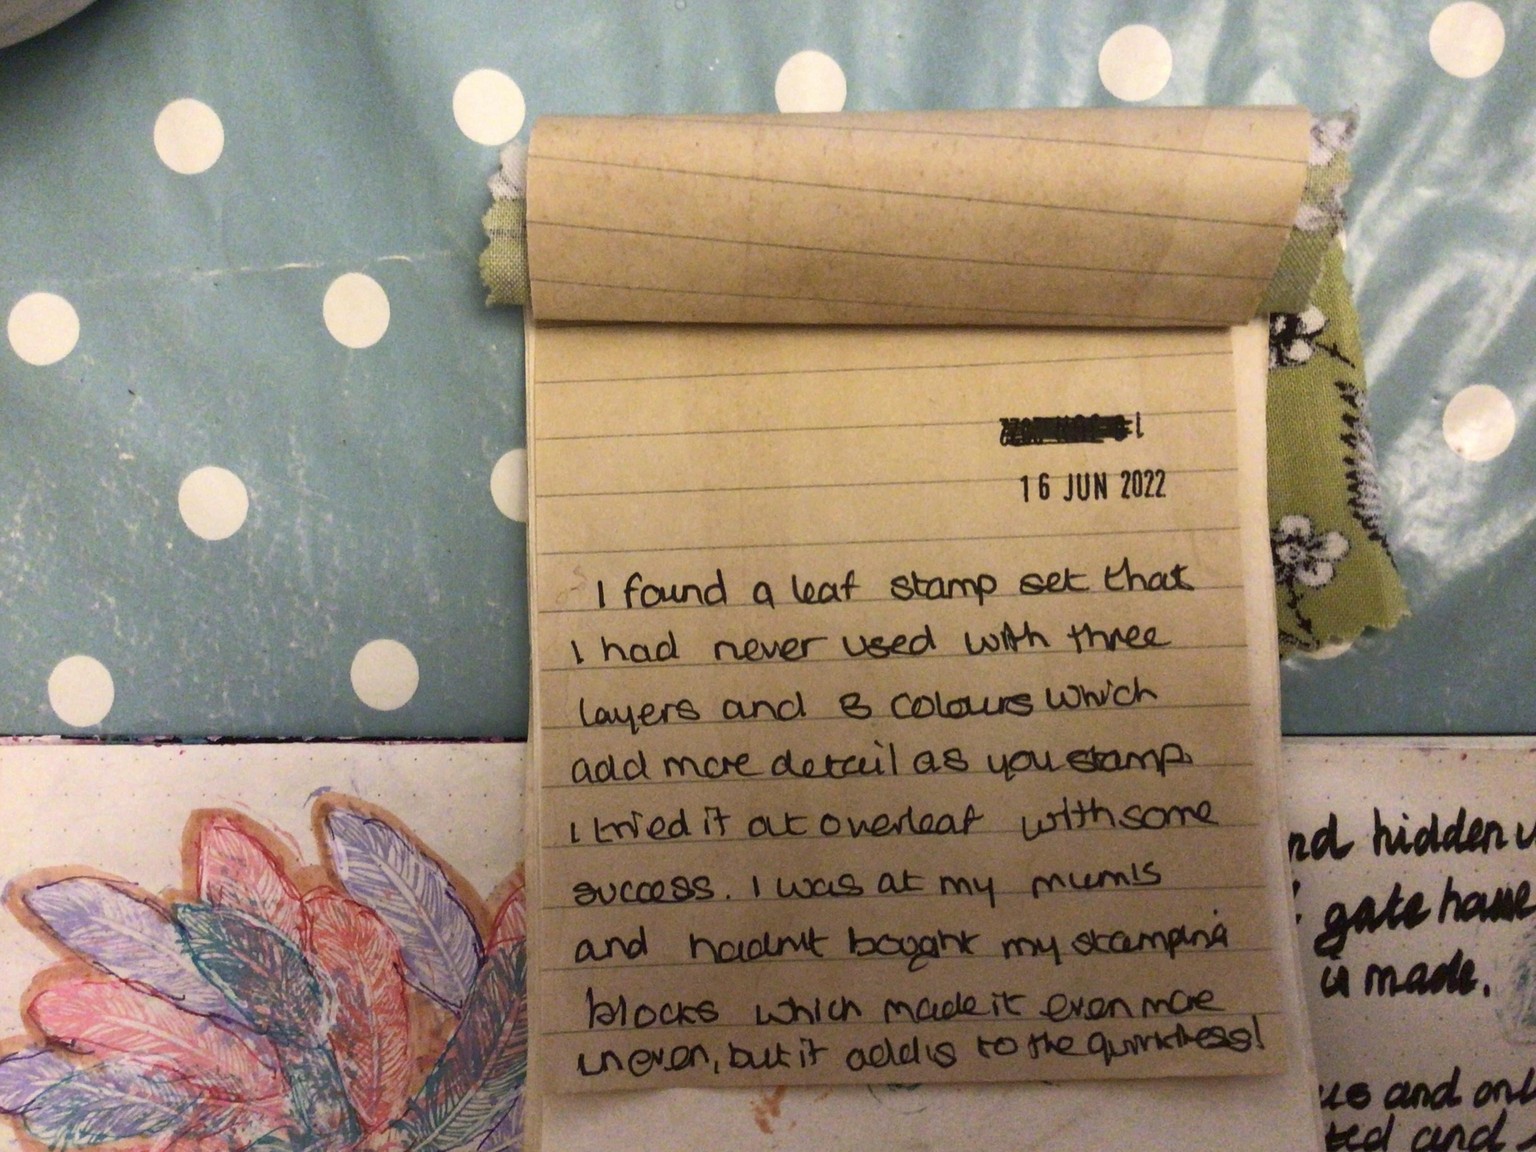 16 JUN 2022
I found a leaf stamp set that
I had never used with three
layers and 3 colours which
add more detail as you stamp.
I tried it out overleaf with some
success. I was at my mum's
and hadn't bought my stamping
blocks which made it even more
uneven, but it adds to the quirkiness!
nd hidden
gate house
is made.
us and onl
ted and